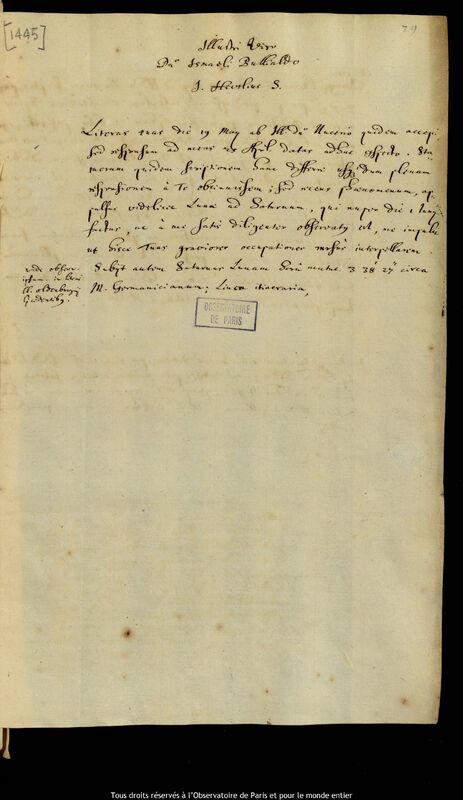 [1445]
79
Illustri Viro
Dno Ismaeli Bullialdo
J. Hevelius S.
Literas tuas die 19 May ab Illo Dno Nucerio quidem accepi,
sed responsum ad meas datas adhuc expecto.
quidem scriptionem hanc differre usq; dum plenam
responsionem à Te obtinuissem; sed recens phaenomenum, ap-
pulsus videlicet Lunae ad Saturnum, qui nuper die 1 Junÿ
factus, ac à me satis diligenter observatus est, me impulit
ut hisce Tuas graviores occupationes rursus interpellarem.
Subÿt autem Saturnus Lunam 3 38' 27" circa
M. Germanicianum; Linea itineraria,
vide observ-
ll. Oldenburgÿ
OBSERVATOIRE
DE PARIS
Tous droits réservés à l'Observatoire de Paris et pour le monde entier